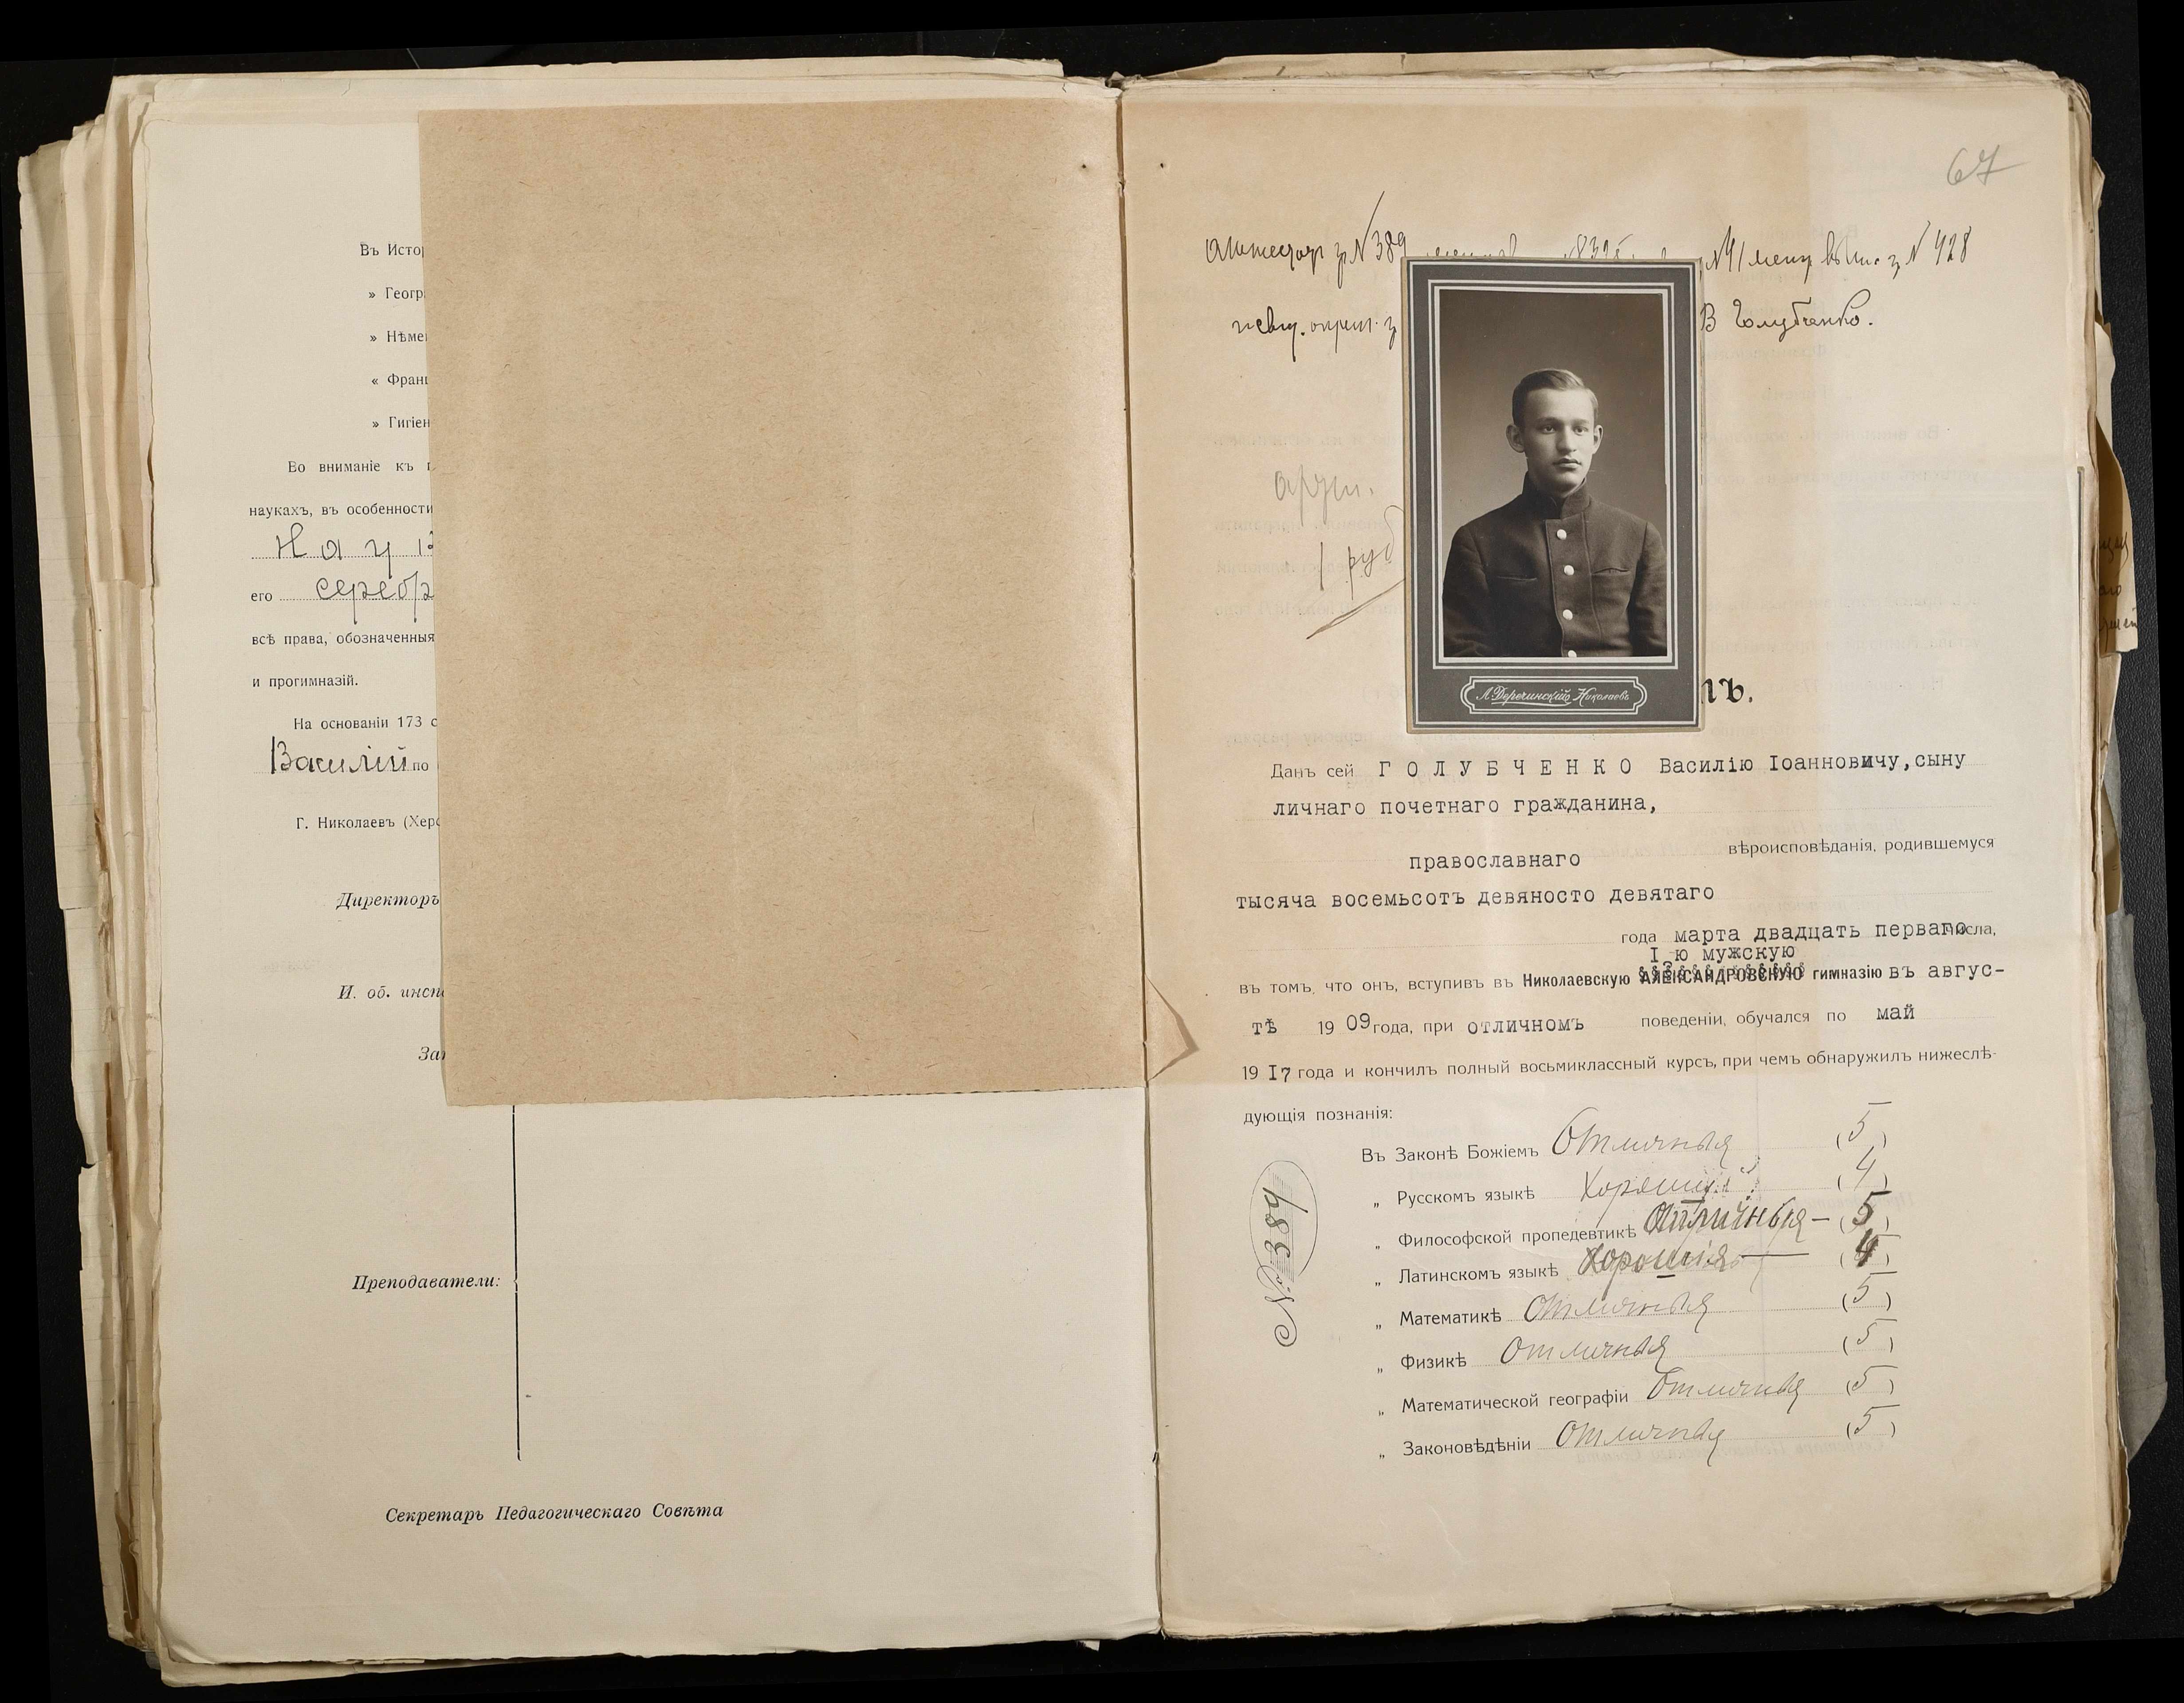 Въ Истор
» Геогр
» Нѣме
« Франц
» Гигіен
Во вниманіе къ
наукахъ, въ особенности
Н а у
его серебр
всѣ права, обозначенныя
и прогимназій.
На основаніи 173 с
Василій по
Г. Николаевъ (Херс
Директоръ
И. об. инсп
За
Преподаватели:
Секретарь Педагогическаго Совѣта
67
Аттестат з № 389 № 41 з № 428
В Голубченко.
1 руб
Л. Деречинскій Николаевъ
ъ.
Данъ сей ГОЛУБЧЕНКО Василію Іоанновичу, сыну
личнаго почетнаго гражданина,
православнаго вѣроисповѣданія, родившемуся
тысяча восемьсотъ девяносто девятаго
года марта двадцать перваго числа,
I-ю мужскую
въ томъ, что онъ, вступивъ въ Николаевскую АЛЕКСАНДРОВСКУЮ гимназію въ авгус-
тѣ 1909 года, при отличномъ поведеніи, обучался по май
19I7 года и кончилъ полный восьмиклассный курсъ, при чемъ обнаружилъ нижеслѣ-
дующія познанія:
Въ Законѣ Божіемъ Отличныя (5)
„ Русскомъ языкѣ Хорошія (4)
„ Философской пропедевтикѣ Отличныя — (5)
„ Латинскомъ языкѣ Хорошія — (4)
„ Математикѣ Отличныя (5)
„ Физикѣ Отличныя (5)
„ Математической географіи Отличныя (5)
„ Законовѣдѣніи Отличныя (5)
№ 389